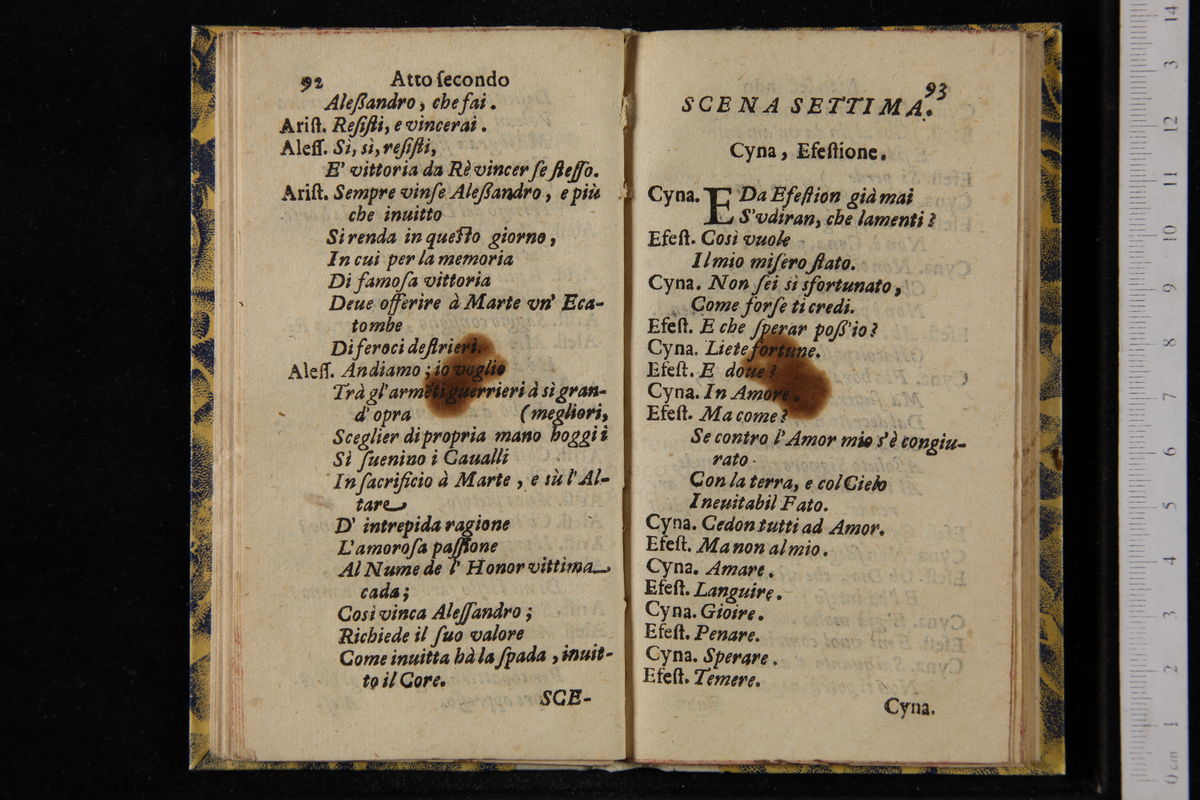 92 Atto ſecondo
Aleßandro, che fai.
Ariſt. Reſiſti, e vincerai.
Aleſſ. Sì, sì, reſiſti,
E' vittoria da Rè vincer ſe ſteſſo.
Ariſt. Sempre vinſe Aleßandro, e più
che inuitto
Si renda in queſto giorno,
In cui per la memoria
Di famoſa vittoria
Deue offerire à Marte vn' Eca-
tombe
Di feroci deſtrieri.
Aleſſ. Andiamo; io voglio
Trà gl'armẽti guerrieri à sì gran-
d'opra (megliori,
Sceglier di propria mano hoggi i
Sì ſuenino i Caualli
In ſacrificio à Marte, e sù l'Al-
tare
D' intrepida ragione
L'amoroſa paſſione
Al Nume de l' Honor vittima
cada;
Così vinca Aleſſandro;
Richiede il ſuo valore
Come inuitta hà la ſpada, inuit-
to il Core.
SCE-
93
SCENA SETTIMA.
Cyna, Efeſtione.
Cyna. E Da Efeſtion già mai
S'vdiran, che lamenti?
Efeſt. Così vuole
Il mio miſero ſtato.
Cyna. Non ſei sì sfortunato,
Come forſe ti credi.
Efeſt. E che ſperar poß'io?
Cyna. Liete fortune.
Efeſt. E doue?
Cyna. In Amore.
Efeſt. Ma come?
Se contro l'Amor mio s'è congiu-
rato
Con la terra, e col Cielo
Ineuitabil Fato.
Cyna. Cedon tutti ad Amor.
Efeſt. Ma non al mio.
Cyna. Amare.
Efeſt. Languire.
Cyna. Gioire.
Efeſt. Penare.
Cyna. Sperare.
Efeſt. Temere.
Cyna.
14
3
12
11
10
9
8
7
6
5
4
3
2
1
0 cm